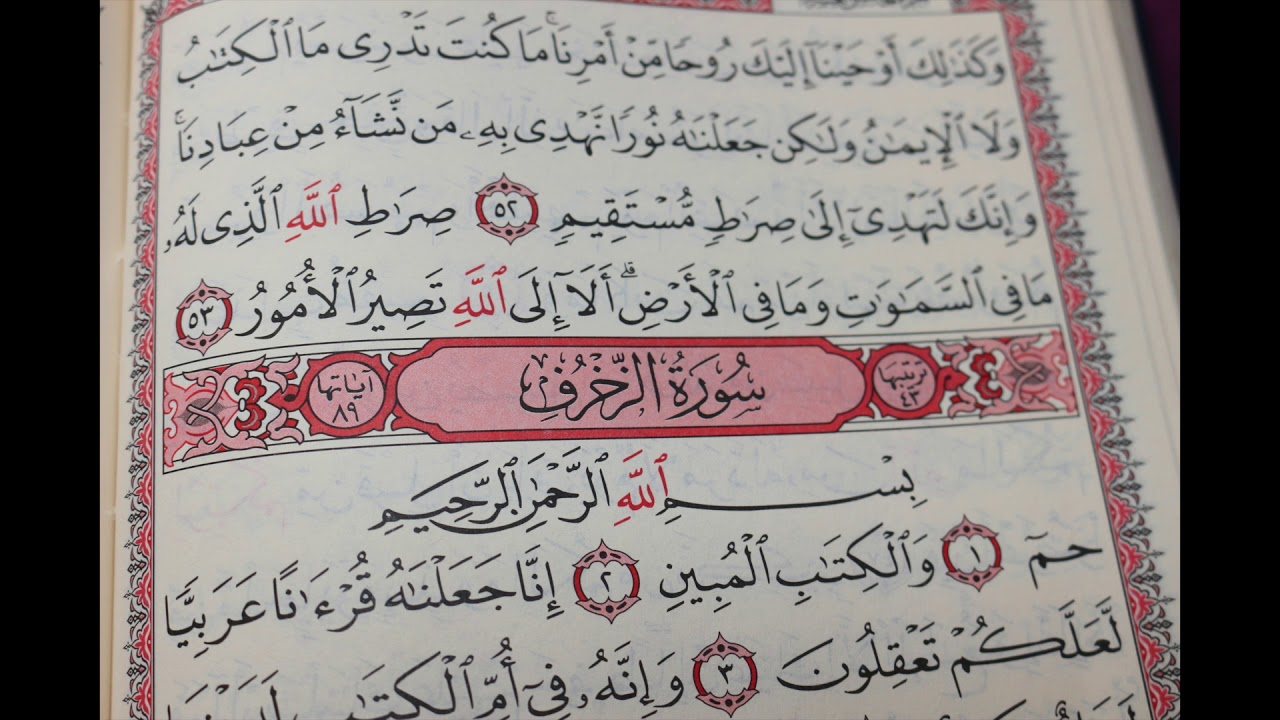 وَكَذَٰلِكَ أَوْحَيْنَآ إِلَيْكَ رُوحًا مِّنْ أَمْرِنَا ۚ مَا كُنتَ تَدْرِى مَا ٱلْكِتَٰبُ
وَلَا ٱلْإِيمَٰنُ وَلَٰكِن جَعَلْنَٰهُ نُورًا نَّهْدِى بِهِۦ مَن نَّشَآءُ مِنْ عِبَادِنَا ۚ
وَإِنَّكَ لَتَهْدِىٓ إِلَىٰ صِرَٰطٍ مُّسْتَقِيمٍ ٥٢ صِرَٰطِ ٱللَّهِ ٱلَّذِى لَهُۥ
مَا فِى ٱلسَّمَٰوَٰتِ وَمَا فِى ٱلْأَرْضِ ۗ أَلَآ إِلَى ٱللَّهِ تَصِيرُ ٱلْأُمُورُ ٥٣
ترتيبها ٤٣ سُورَةُ الزُّخْرُفِ آياتها ٨٩
بِسْمِ ٱللَّهِ ٱلرَّحْمَٰنِ ٱلرَّحِيمِ
حمٓ ١ وَٱلْكِتَٰبِ ٱلْمُبِينِ ٢ إِنَّا جَعَلْنَٰهُ قُرْءَٰنًا عَرَبِيًّا
لَّعَلَّكُمْ تَعْقِلُونَ ٣ وَإِنَّهُۥ فِىٓ أُمِّ ٱلْكِتَٰبِ لَدَيْنَا